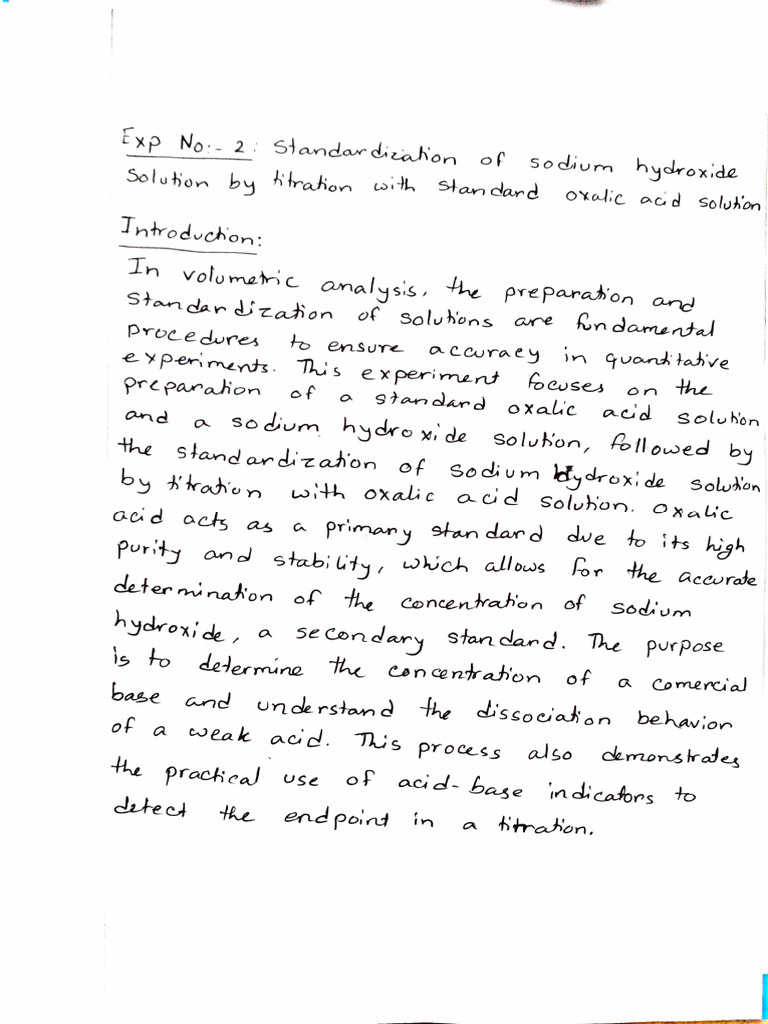 Exp No:- 2: Standardization of sodium hydroxide
Solution by titration with standard oxalic acid solution
Introduction:
In volumetric analysis, the preparation and
standardization of solutions are fundamental
procedures to ensure accuracy in quantitative
experiments. This experiment focuses on the
preparation of a standard oxalic acid solution
and a sodium hydroxide solution, followed by
the standardization of sodium Hydroxide solution
by titration with oxalic acid solution. Oxalic
acid acts as a primary standard due to its high
purity and stability, which allows for the accurate
determination of the concentration of sodium
hydroxide, a secondary standard. The purpose
is to determine the concentration of a comercial
base and understand the dissociation behavior
of a weak acid. This process also demonstrates
the practical use of acid-base indicators to
detect the endpoint in a titration.